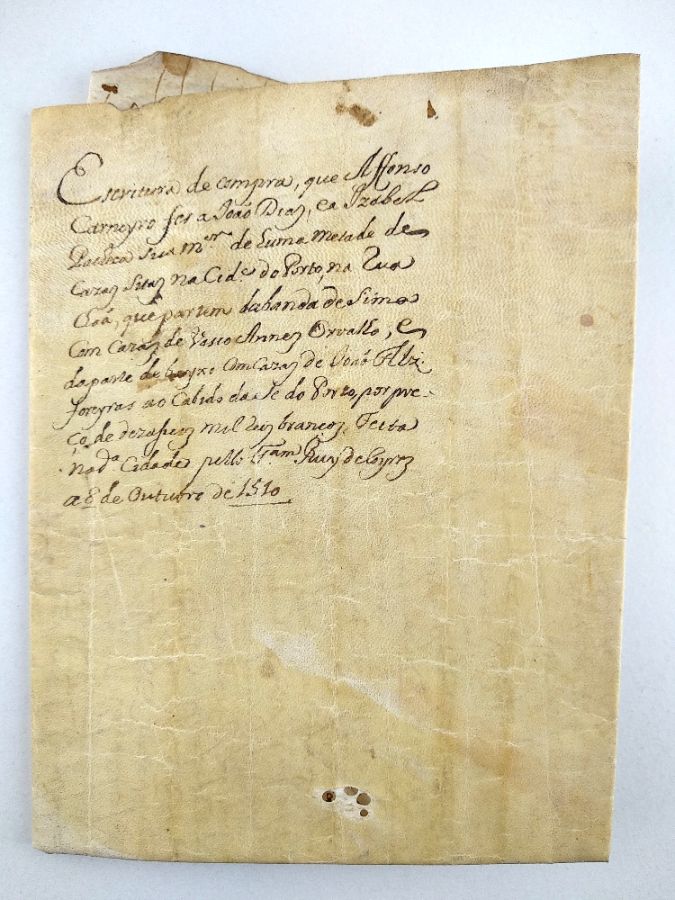 Escritura de compra, que Affonso
Carneyro fes a João Diaz, e a Izabel
sua m.er de huma metade de
Cazas sitas na Cid.e do Porto, na Rua
Chaã, que partem da banda de Sima
Com Cazas de Vasco Annes Orvalho, e
da parte de bayxo Com Cazas de João Alz
foreyras ao Cabido da Se do Porto, por pre-
ço de mil reis brancos. Feita
na d.a Cidade pello T.am Ruy de
a 8 de Outubro de 1510